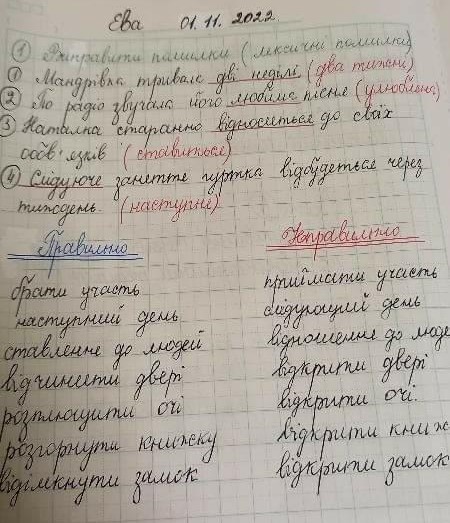 Ева 01.11.2022
① Виправити помилки (лексичні помилки)
① Мандрівка тривала дві неділі (два тижні)
② По радіо звучала його любима пісня (улюблена)
③ Наталка старанно відноситься до своїх
обов'язків (ставиться)
④ Слідуюче заняття гуртка відбудеться через
тиждень. (наступне)
Правильно Неправильно
брати участь приймати участь
наступний день слідующий день
ставлення до людей відношення до люде
відчиняти двері відкрити двері
розплющити очі відкрити очі.
розгорнути книжку відкрити книж
відімкнути замок відкрити замок